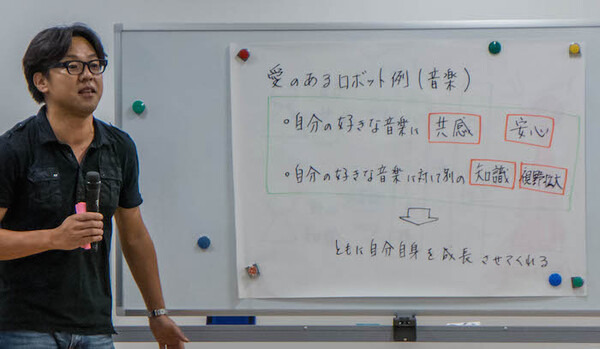 愛のあるロボット例(音楽)
・自分の好きな音楽に 共感 安心
・自分の好きな音楽に対して別の 知識 視野拡大
ともに自分自身を成長させてくれる